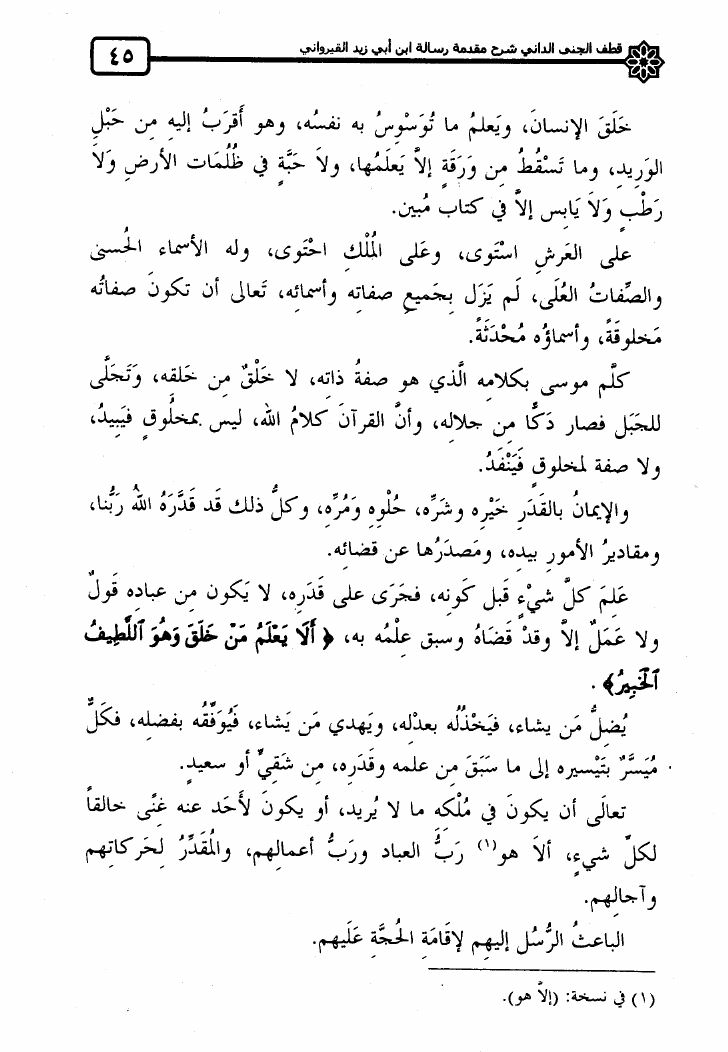 قطف الجنى الداني شرح مقدمة رسالة ابن أبي زيد القيرواني
٤٥
خَلَقَ الإنسانَ، ويَعلمُ ما تُوَسْوِسُ به نفسُه، وهو أَقرَبُ إليه مِن حَبْلِ
الوَرِيدِ، وما تَسْقُطُ مِن وَرَقَةٍ إلاَّ يَعلَمُها، ولاَ حَبَّة في ظُلُمَات الأرضِ وَلاَ
رَطْبٍ وَلاَ يَابِس إلاَّ في كتاب مُبين.
على العَرشِ اسْتَوى، وعَلى المُلْكِ احْتَوى، وله الأسماء الحُسنى
والصِّفاتُ العُلَى، لَم يَزَل بِجَميعِ صفاته وأسمائِه، تَعالى أن تكونَ صفاتُه
مَخلوقَةً، وأسماؤُه مُحْدَثَةً.
كلَّم موسى بكلامِه الَّذي هو صفةُ ذاتِه، لا خَلْقٌ مِن خَلقِه، وَتَجَلَّى
للجَبَل فصار دَكًّا مِن جلالِه، وأنَّ القرآنَ كلامُ الله، ليس بمخلُوقٍ فيَبِيدُ،
ولا صفة لمخلوقٍ فَيَنْفَدُ.
والإيمانُ بالقَدَرِ خَيْرِه وشَرِّه، حُلْوِه وَمُرِّه، وكلُّ ذلك قَد قَدَّرَهُ اللهُ رَبُّنا،
ومقاديرُ الأمورِ بيدِه، ومَصدَرُها عن قضائِه.
عَلِمَ كلَّ شيْءٍ قَبل كَونِه، فجَرَى على قَدَرِه، لا يَكون مِن عبادِه قَولٌ
ولا عَمَلٌ إلاَّ وقدْ قَضَاهُ وسبق عِلْمُه به، ﴿ أَلَا يَعْلَمُ مَنْ خَلَقَ وَهُوَ ٱللَّطِيفُ
ٱلْخَبِيرُ﴾ .
يُضِلُّ مَن يشاء، فيَخْذُلُه بعدْلِه، ويَهدي مَن يَشاء، فَيُوَفِّقُه بفضله، فكَلٌّ
مُيَسَّرٌ بتَيْسيره إلى ما سَبَقَ مِن علمه وقَدَرِه، مِن شَقِيٍّ أو سعيدٍ.
تعالَى أن يكونَ في مُلْكِه ما لا يُريد، أو يكونَ لأَحَد عنه غِنًى خالقاً
لكلِّ شيءٍ، ألاَ هو(١) رَبُّ العباد ورَبُّ أعمالِهم، والمُقَدِّرُ لِحَركاتِهم
وآجالِهم.
الباعثُ الرُّسُل إليهِم لإقَامَةِ الحُجَّةِ عَلَيهم.
(١) في نسخة: (إلاَّ هو).